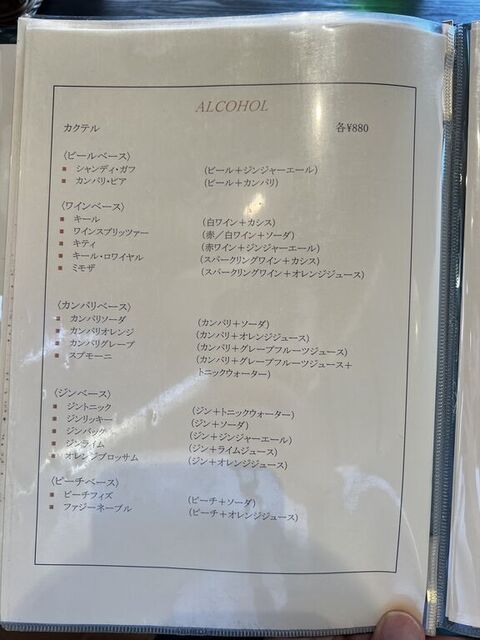 ALCOHOL
カクテル 各¥880
〈ビールベース〉
シャンディ・ガフ (ビール＋ジンジャーエール)
カンパリ・ビア (ビール＋カンパリ)
〈ワインベース〉
キール (白ワイン＋カシス)
ワインスプリッツァー (赤／白ワイン＋ソーダ)
キティ (赤ワイン＋ジンジャーエール)
キール・ロワイヤル (スパークリングワイン＋カシス)
ミモザ (スパークリングワイン＋オレンジジュース)
〈カンパリベース〉
カンパリソーダ (カンパリ＋ソーダ)
カンパリオレンジ (カンパリ＋オレンジジュース)
カンパリグレープ (カンパリ＋グレープフルーツジュース)
スプモーニ (カンパリ＋グレープフルーツジュース＋
トニックウォーター)
〈ジンベース〉
ジントニック (ジン＋トニックウォーター)
ジンリッキー (ジン＋ソーダ)
ジンバック (ジン＋ジンジャーエール)
ジンライム (ジン＋ライムジュース)
オレンジブロッサム (ジン＋オレンジジュース)
〈ピーチベース〉
ピーチフィズ (ピーチ＋ソーダ)
ファジーネーブル (ピーチ＋オレンジジュース)